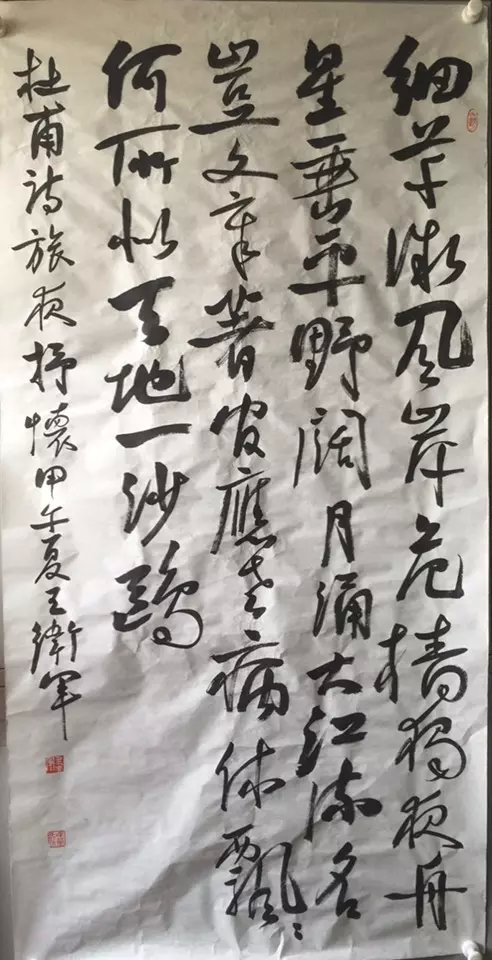 细草微风岸危樯獨夜舟
星垂平野阔月涌大江流名
豈文章著官應老病休飄〻
何所似天地一沙鷗
杜甫诗旅夜抒懷甲午夏王衛軍